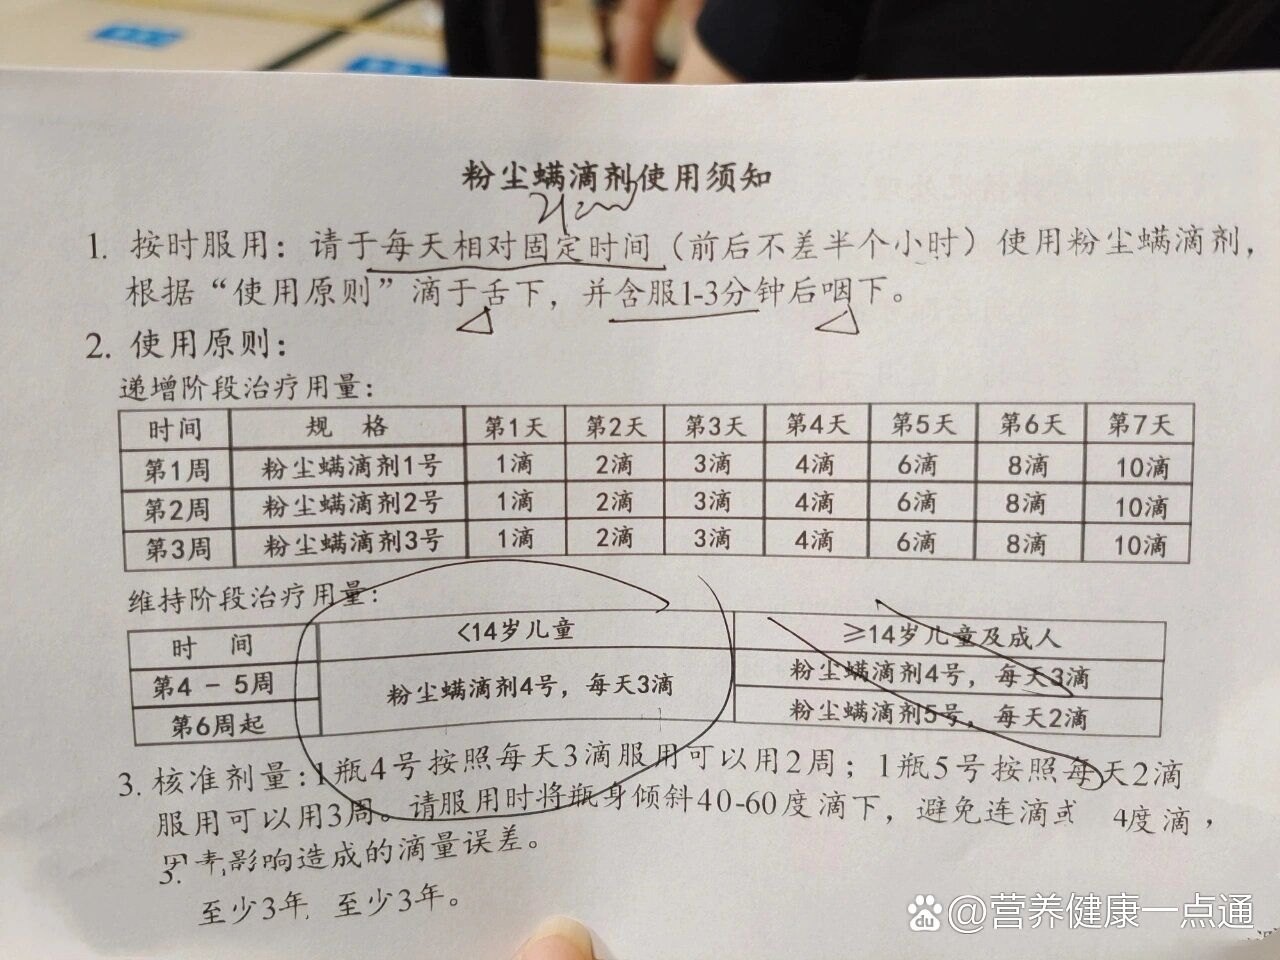 粉尘螨滴剂使用须知
1. 按时服用：请于每天相对固定时间（前后不差半个小时）使用粉尘螨滴剂，
根据“使用原则”滴于舌下，并含服1-3分钟后咽下。
2. 使用原则：
递增阶段治疗用量：
时间 规 格 第1天 第2天 第3天 第4天 第5天 第6天 第7天
第1周 粉尘螨滴剂1号 1滴 2滴 3滴 4滴 6滴 8滴 10滴
第2周 粉尘螨滴剂2号 1滴 2滴 3滴 4滴 6滴 8滴 10滴
第3周 粉尘螨滴剂3号 1滴 2滴 3滴 4滴 6滴 8滴 10滴
维持阶段治疗用量：
时 间 <14岁儿童 ≥14岁儿童及成人
第4－5周 粉尘螨滴剂4号，每天3滴 粉尘螨滴剂4号，每天3滴
第6周起 粉尘螨滴剂5号，每天2滴
3. 核准剂量：1瓶4号按照每天3滴服用可以用2周；1瓶5号按照每天2滴
服用可以用3周。请服用时将瓶身倾斜40-60度滴下，避免连滴或 4度滴，
影响造成的滴量误差。
3.
至少3年 至少3年。
@营养健康一点通